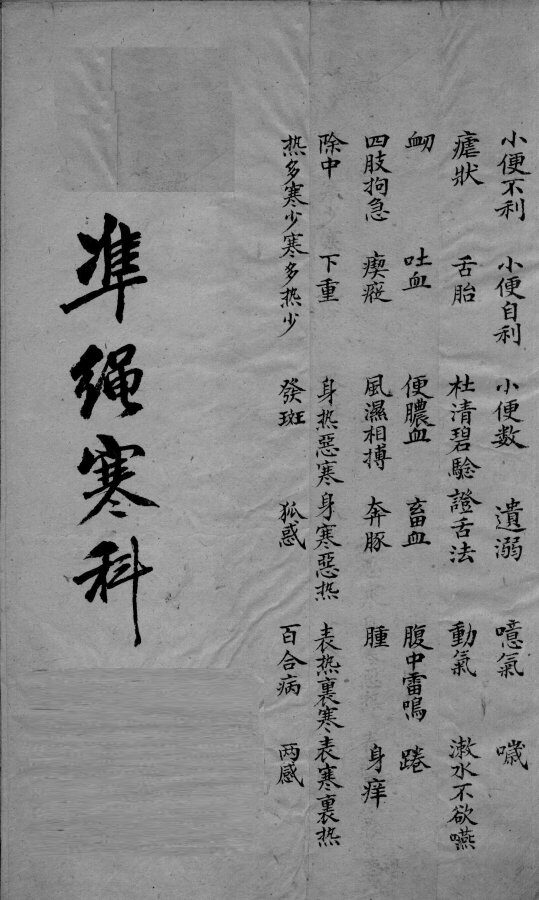 小便不利 小便自利 小便数 遺溺 噫氣 噦
瘧狀 舌胎 杜清碧驗證舌法 動氣 漱水不欲嚥
衄 吐血 便膿血 畜血 腹中雷鳴 踡
四肢拘急 瘈瘲 風濕相搏 奔豚 腫 身痒
除中 下重 身热惡寒身寒惡热 表热裏寒表寒裏热
热多寒少寒多热少 發斑 狐惑 百合病 两感
準繩寒科